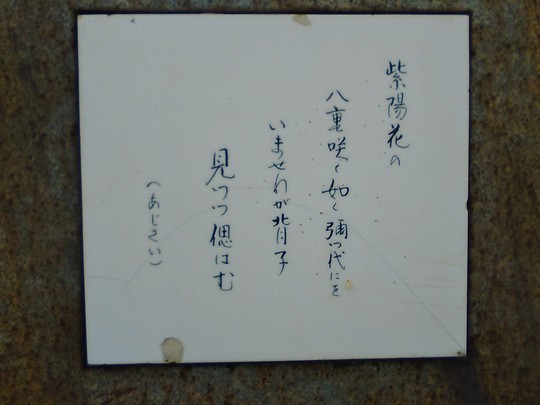 紫陽花の
八重咲く如く彌つ代にを
いませわが背子
見つつ偲はむ
（あじさい）